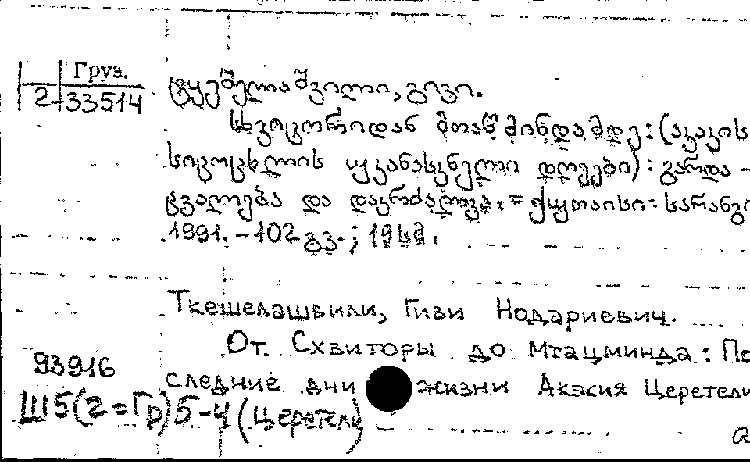 Груз.
2-33514
ტყეშელაშვილი, გივი.
სხვიტორიდან მთაწმინდამდე: (აკაკის
სიცოცხლის უკანასკნელი დღეები): გარდა-
ცვალება და დაკრძალვა. = ქუთაისი: სარანგი
1991. - 102 გვ.; 19სმ.
Ткешелашвили, Гиви Нодариевич.
От Схвиторы до Мтацминда: По
следние дни жизни Акакия Церетели
93916
Ш5(2=Гр)5-4 (Церетели